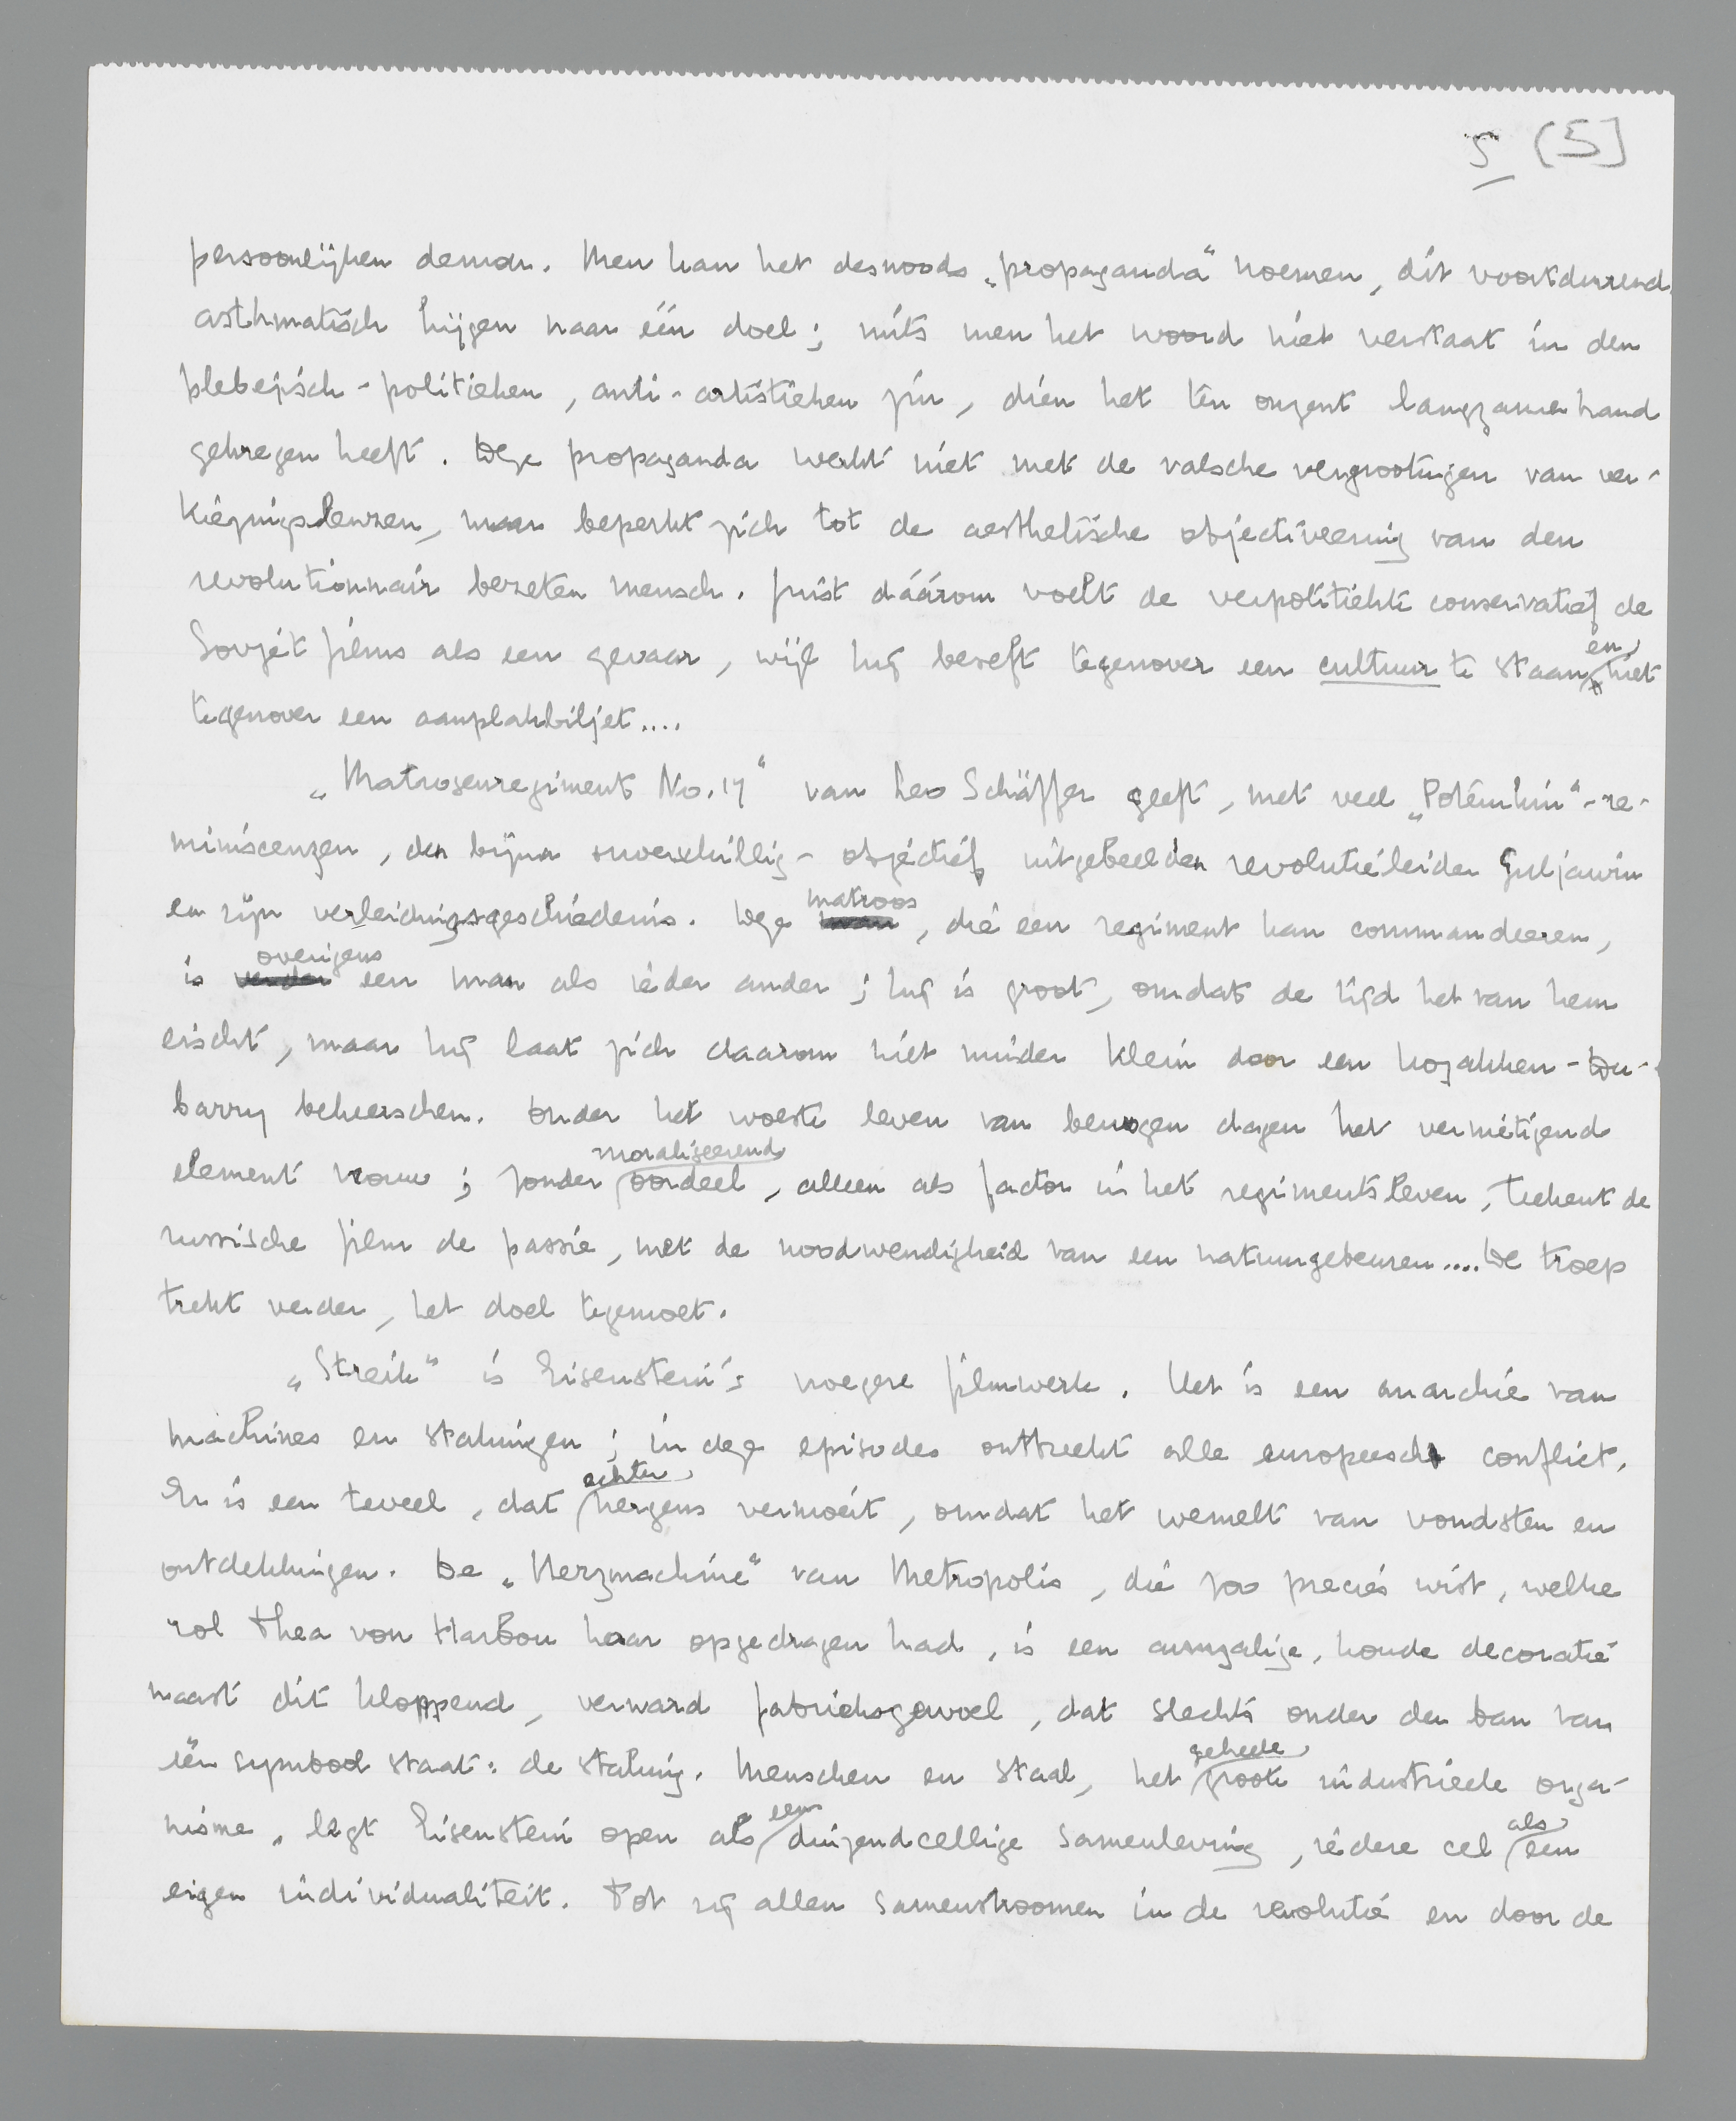 5 (5]
persoonlijken demon. Men kan het desnoods „propaganda" noemen, dit voortdurend
asthmatisch hijgen naar één doel; mits men het woord niet verstaat in den
plebejisch-politieken, anti-artistieken zin, dien het ten onzent langzamerhand
gekregen heeft. Deze propaganda werkt niet met de valsche vergrootingen van ver-
kiezingsleuzen, maar beperkt zich tot de aesthetische objectiveering van den
revolutionnair bezeten mensch. Juist dáárom voelt de verpolitiekte conservatief de
Sovjet films als een gevaar, wijl hij beseft tegenover een cultuur te staan en niet
tegenover een aanplakbiljet....
„Matrosenregiment No. 17" van Leo Schäffer geeft, met veel „Potemkin"-re-
miniscenzen, den bijna onverschillig-objectief uitgebeelden revolutieleider Guljawin
en zijn verleidingsgeschiedenis. Deze matroos, die een regiment kan commandeeren,
is overigens een man als ieder ander; hij is groot, omdat de tijd het van hem
eischt, maar hij laat zich daarom niet minder klein door een kozakken-Du-
barry beheerschen. Onder het woeste leven van bewogen dagen het vernietigend
element vrouw; zonder moraliseerend oordeel, alleen als factor in het regimentsleven, teekent de
russische film de passie, met de noodwendigheid van een natuurgebeuren.... De troep
trekt verder, het doel tegemoet.
„Streik" is Eisenstein's vroegere filmwerk. Het is een anarchie van
machines en stakingen; in deze episodes ontbreekt alle europeesch conflict.
Er is een teveel, dat echter nergens vermoeit, omdat het wemelt van vondsten en
ontdekkingen. De „Herzmachine" van Metropolis, die zoo precies wist, welke
rol Thea von Harbou haar opgedragen had, is een armzalige, koude decoratie
naast dit kloppend, verward fabrieksgewoel, dat slechts onder den ban van
één symbool staat: de staking. Menschen en staal, het geheele groote industrieele orga-
nisme, legt Eisenstein open als een duizendcellige samenleving, iedere cel als een
eigen individualiteit. Tot zij allen samenstroomen in de revolutie en door de